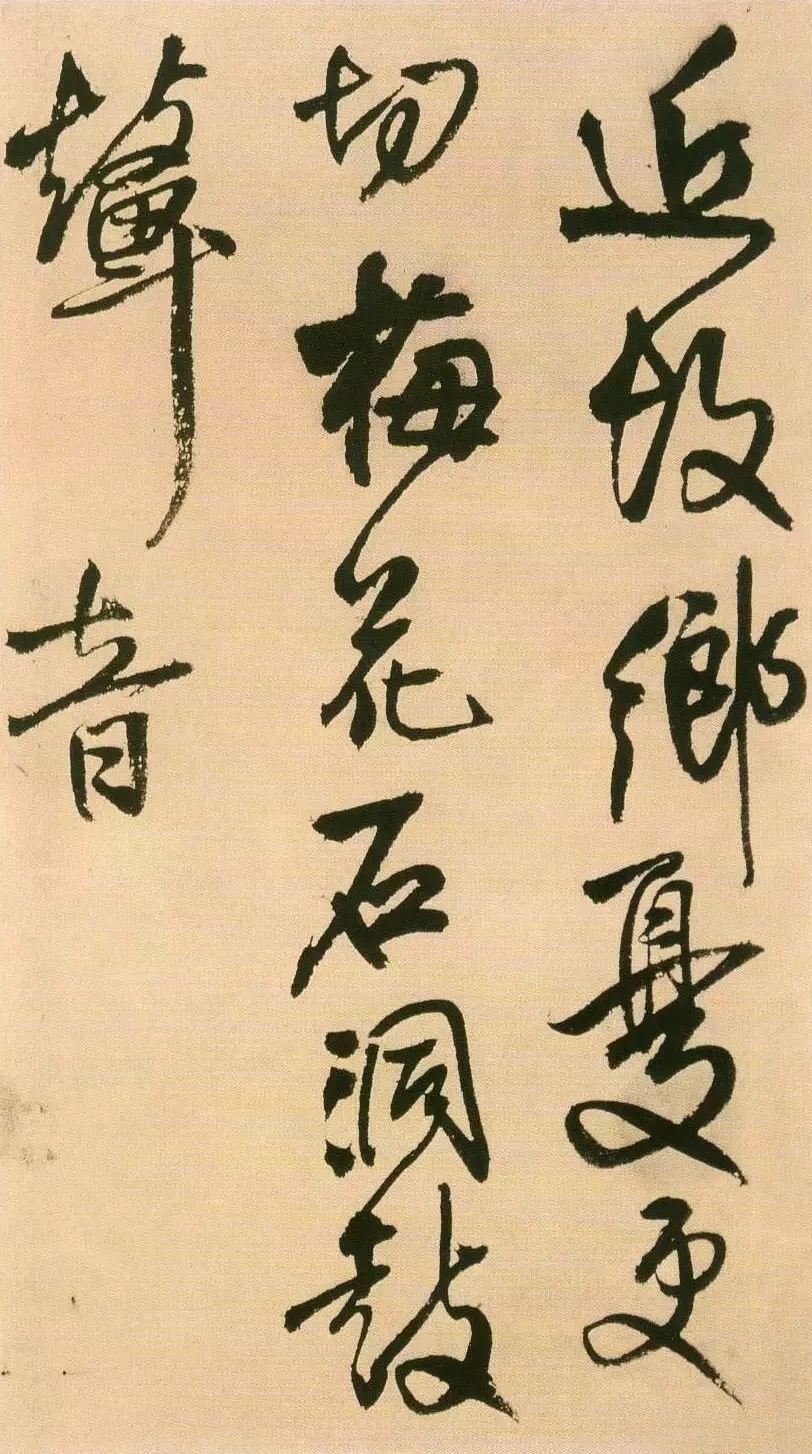 近故鄉憂更
切梅花石洞鼓
鼙音